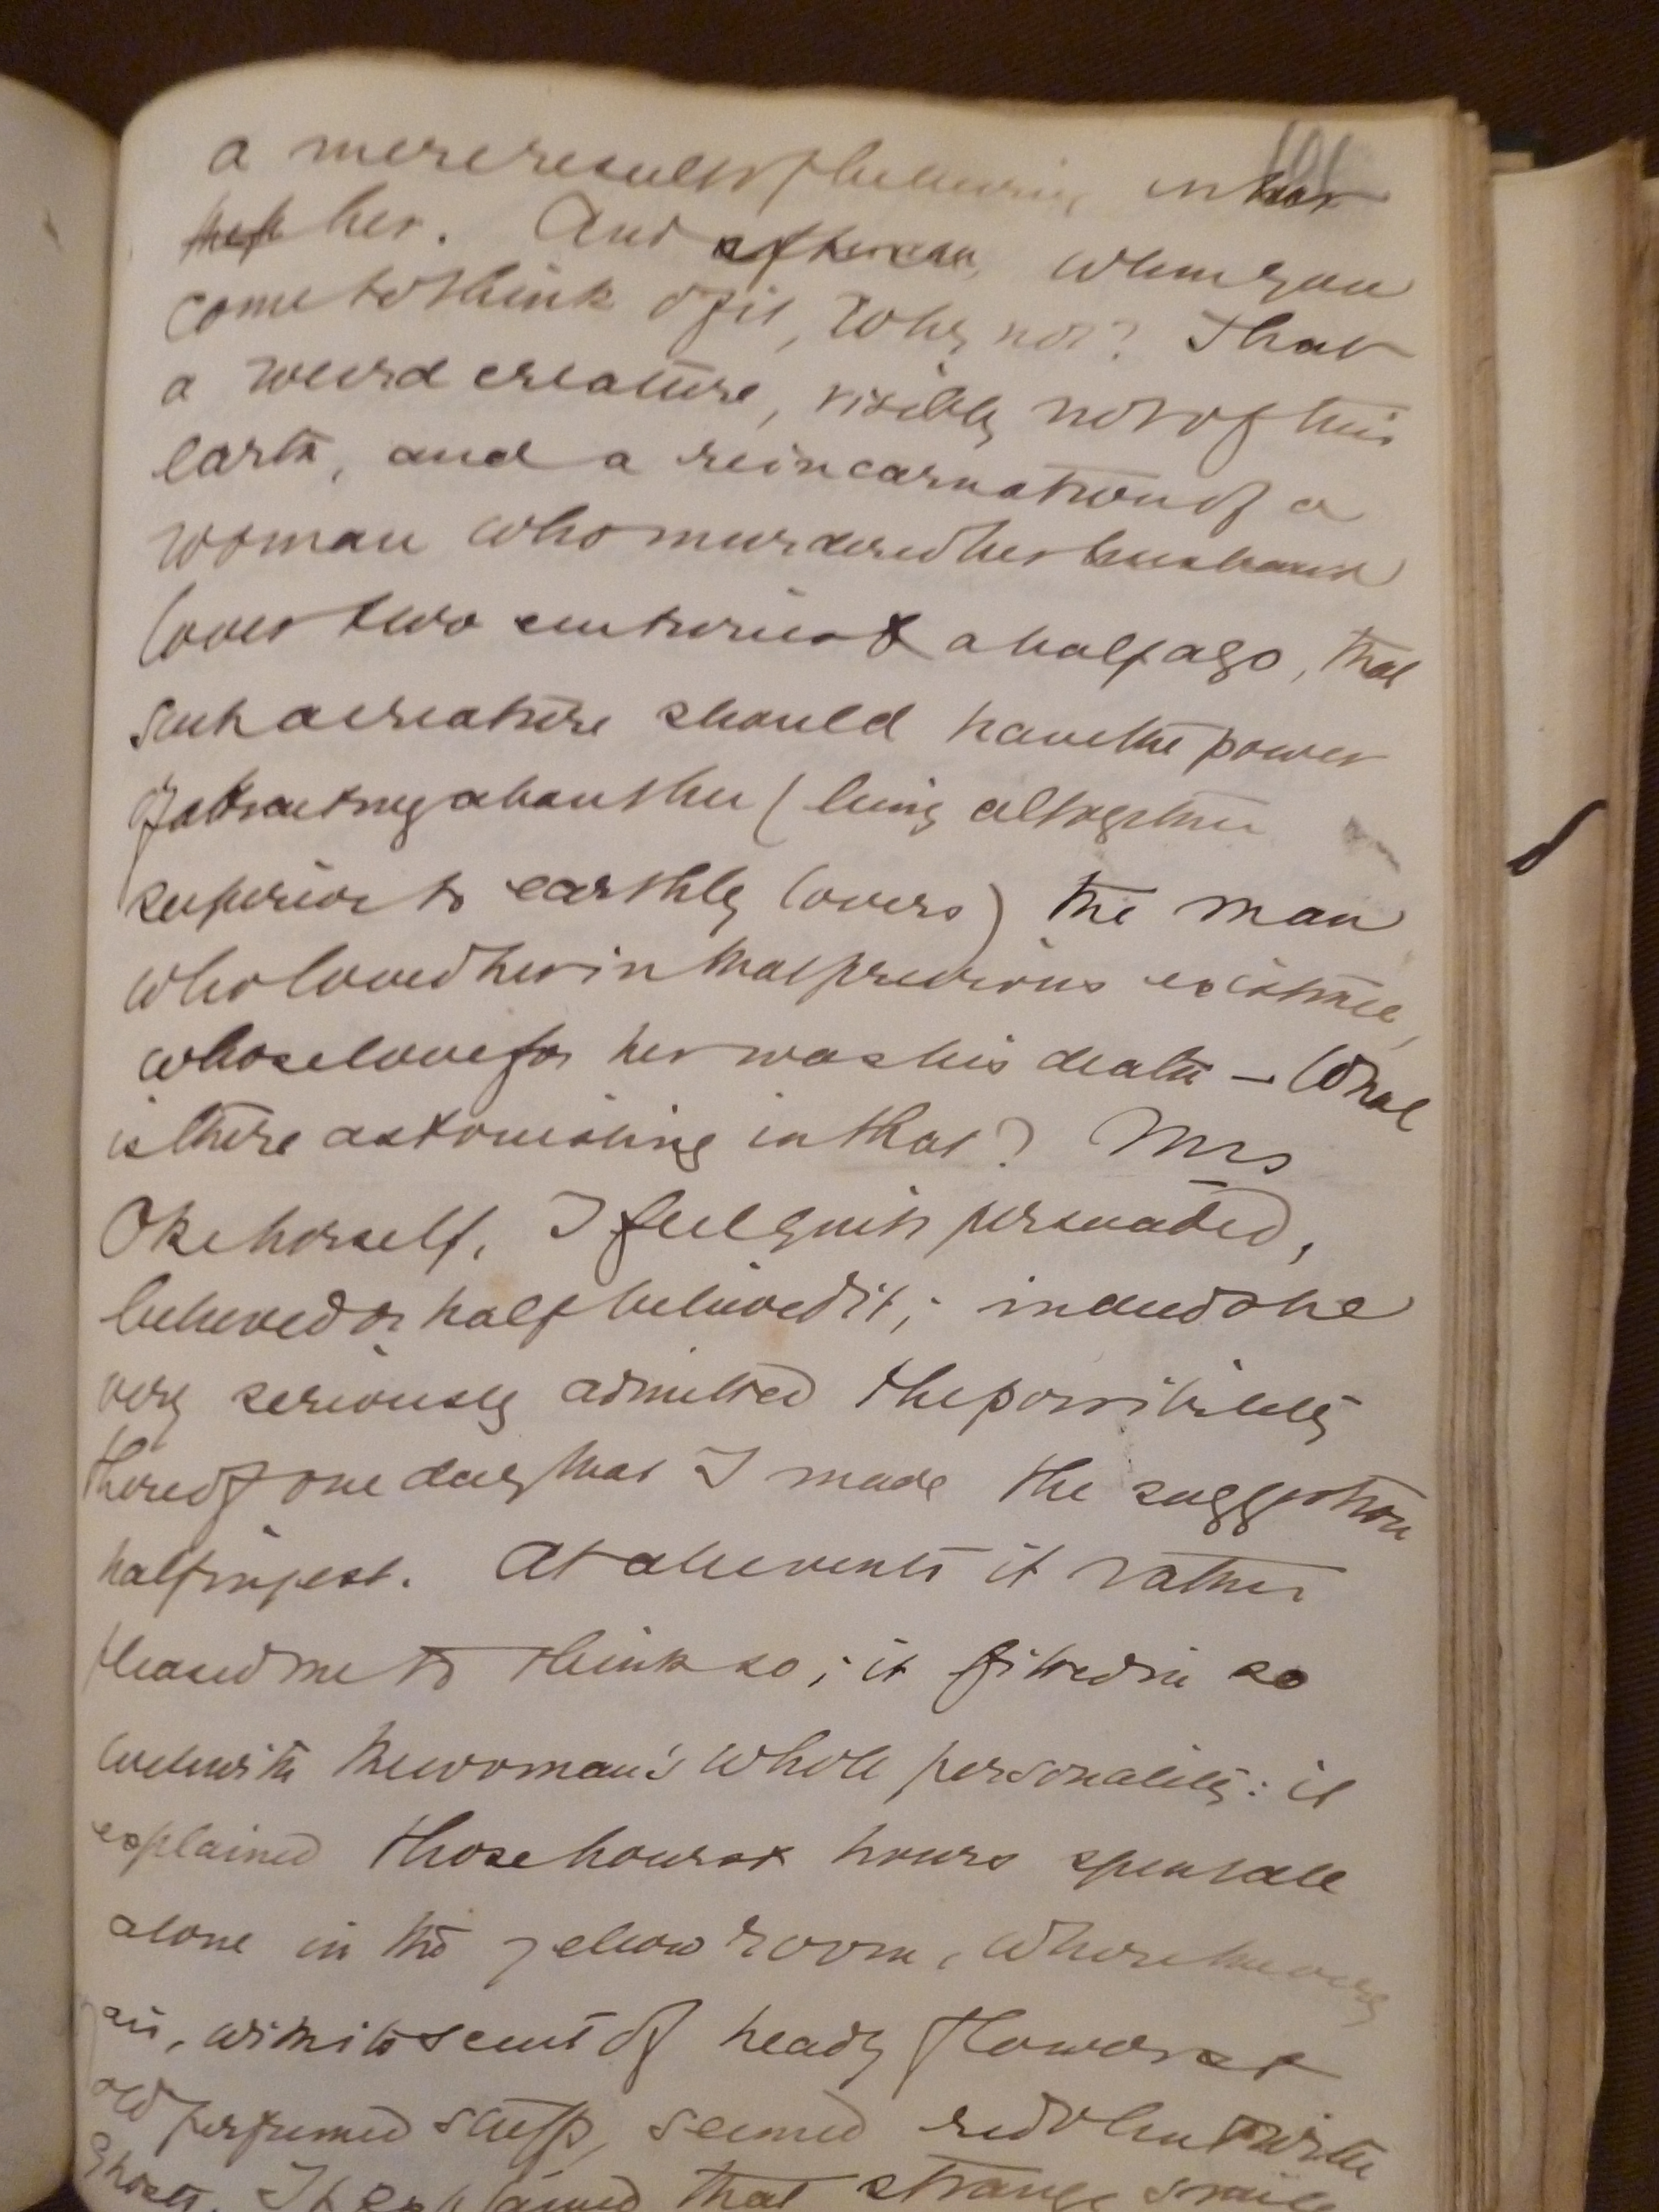 101
a mere result of believing in her
her. And after all, when you
come to think of it, why not? That
a weird creature, visibly not of this
earth, and a reincarnation of a
woman who murdered her husband
lover two centuries & a half ago, that
such a creature should have the power
of attracting about her (being altogether
superior to earthly lovers) the man
who loved her in that previous existence,
whose love for her was his death – What
is there astonishing in that? Mrs
Oke herself, I feel quite persuaded,
believed or half believed it; indeed she
very seriously admitted the possibility
thereof one day that I made the suggestion
half in jest. At all events it rather
pleased me to think so; it fitted in so
well with the woman's whole personality: it
explained those hours & hours spent all
alone in the yellow room, where the very
air, with its scent of heady flowers &
old perfumed stuffs, seemed redolent with
ghosts. It explained that strange smile